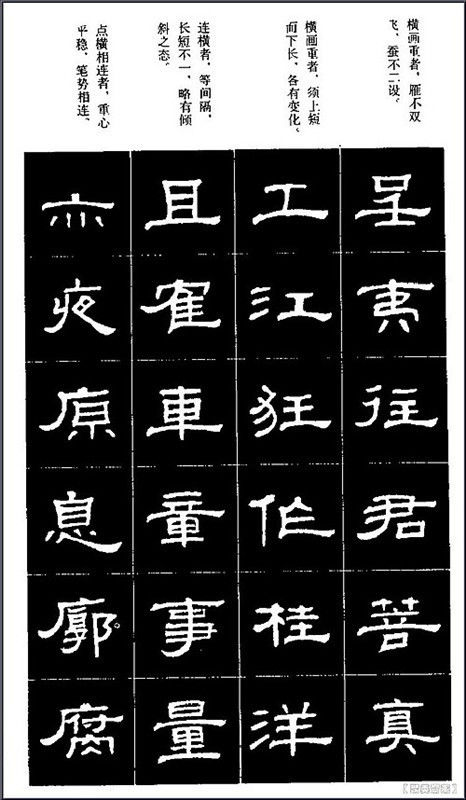 横画重者，雁不双
飞、蚕不二设。
呈
夷
往
君
菩
真
横画重者，须上短
而下长，各有变化。
工
江
狂
作
桂
洋
连横者，等间隔，
长短不一，略有倾
斜之态。
且
隺
車
章
事
量
点横相连者，重心
平稳，笔势相连。
亦
夜
原
息
廓
腐